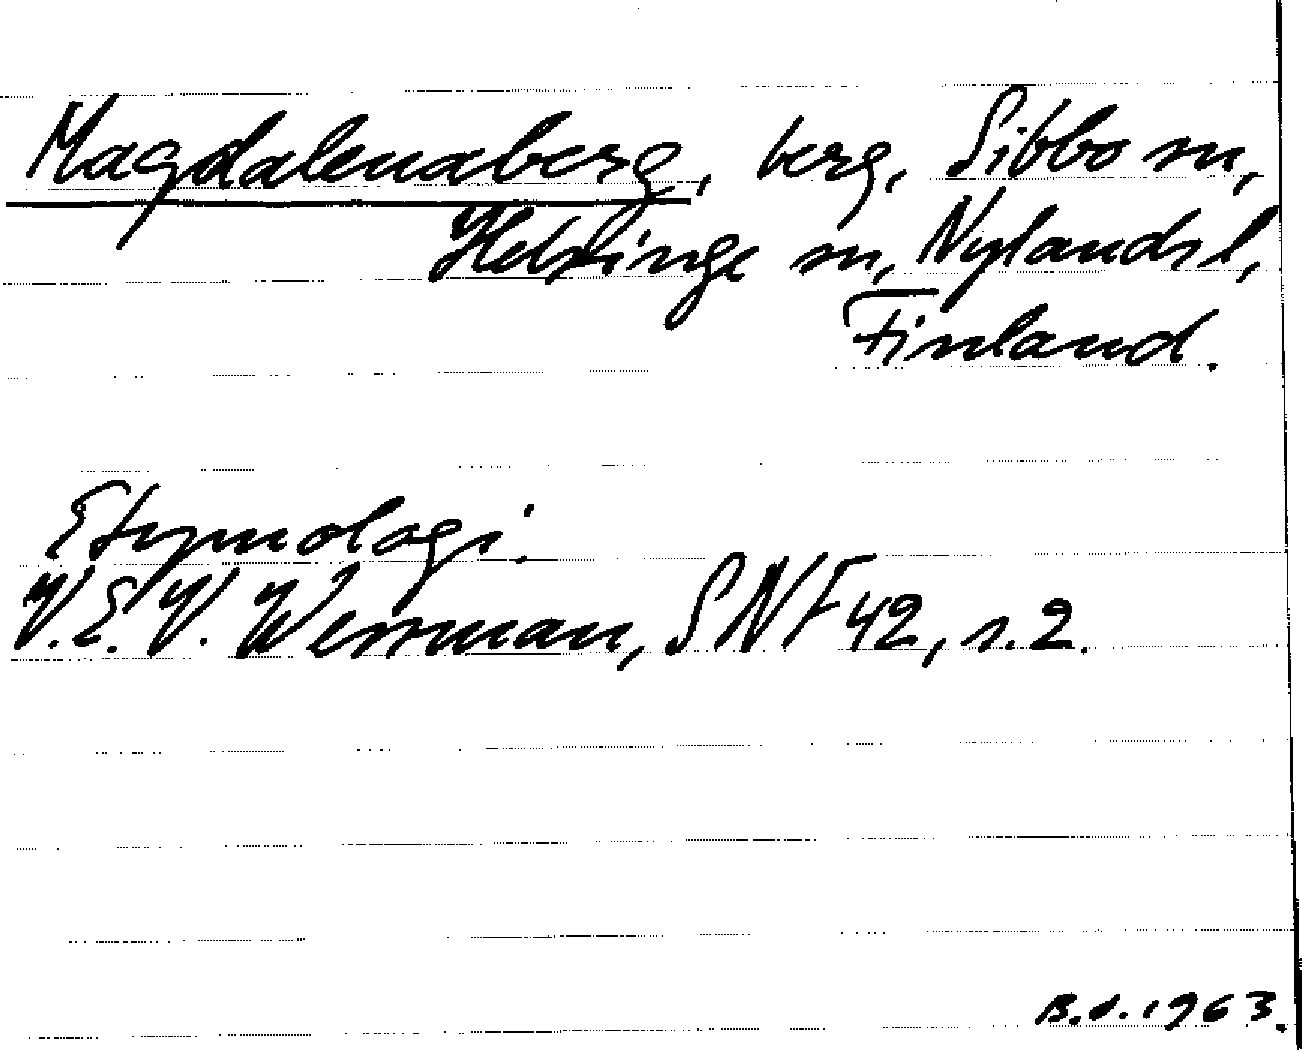 Magdalenaberg, berg, Sibbo sn,
Helsinge sn, Nylands l,
Finland.
Etymologi.
V.E.V. Wessman, SNF 42, s. 2.
B.d. 1963.